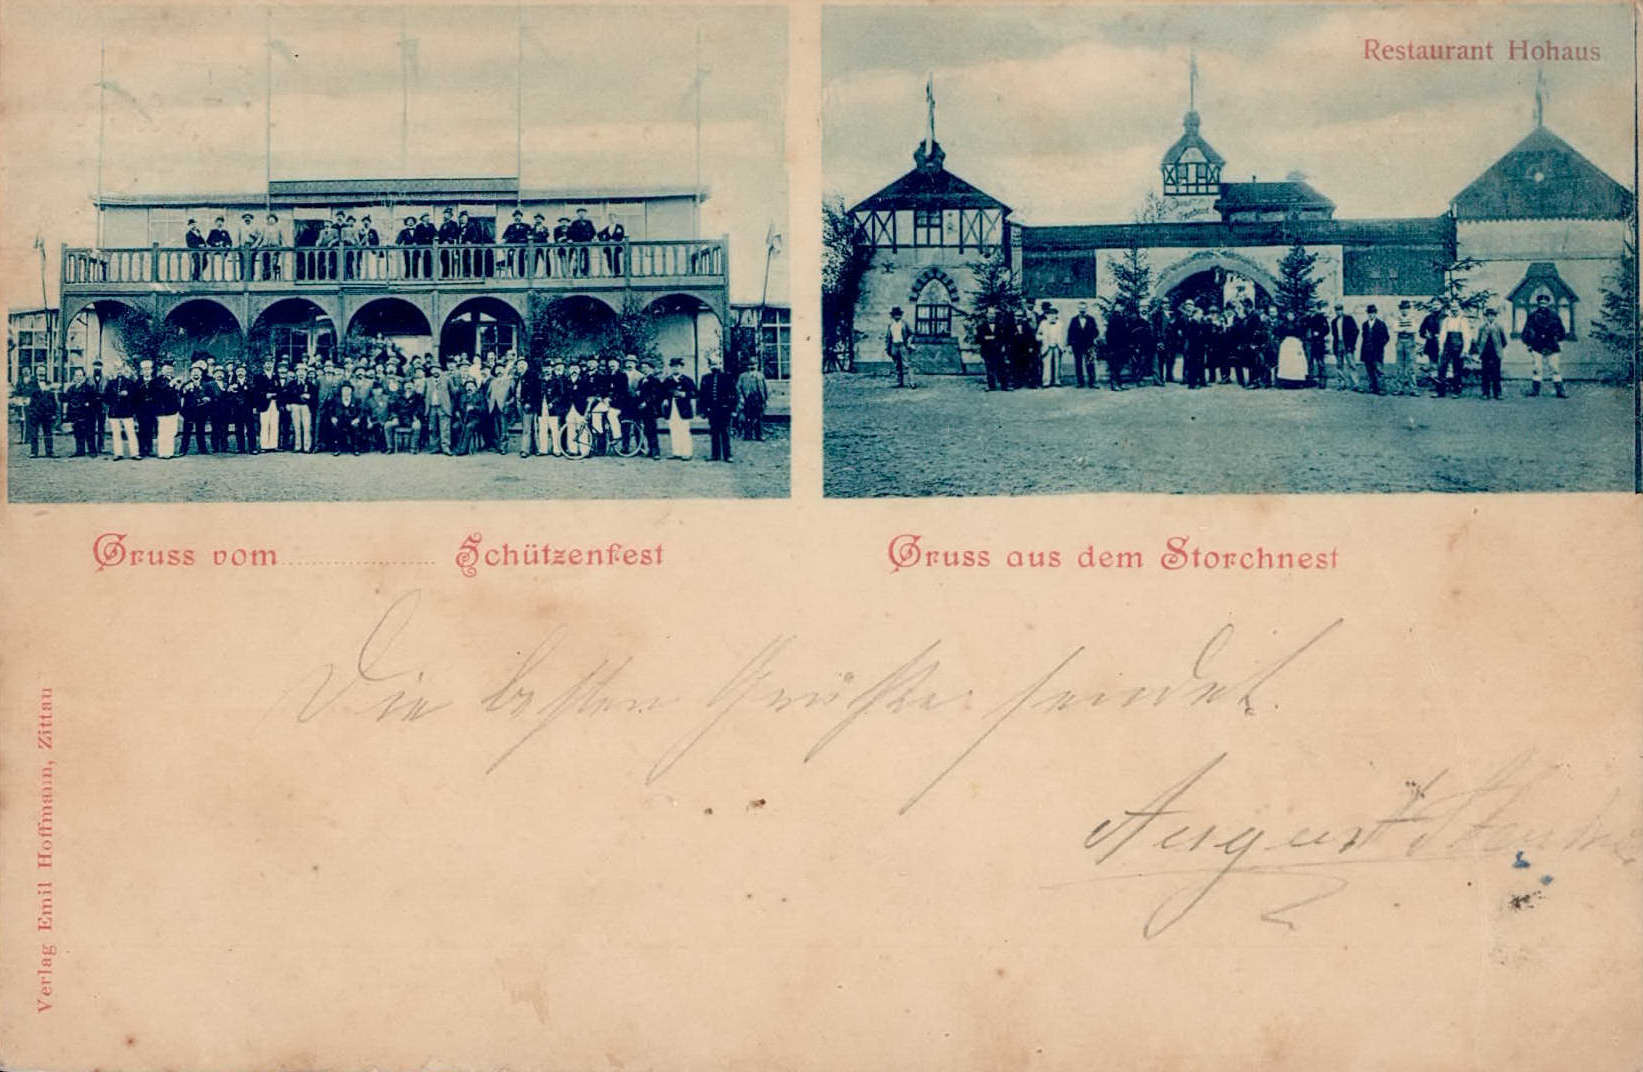 Restaurant Hohaus
Gruss vom .................... Schützenfest
Gruss aus dem Storchnest
Die besten Grüße sendet
August
Verlag Emil Hoffmann, Zittau